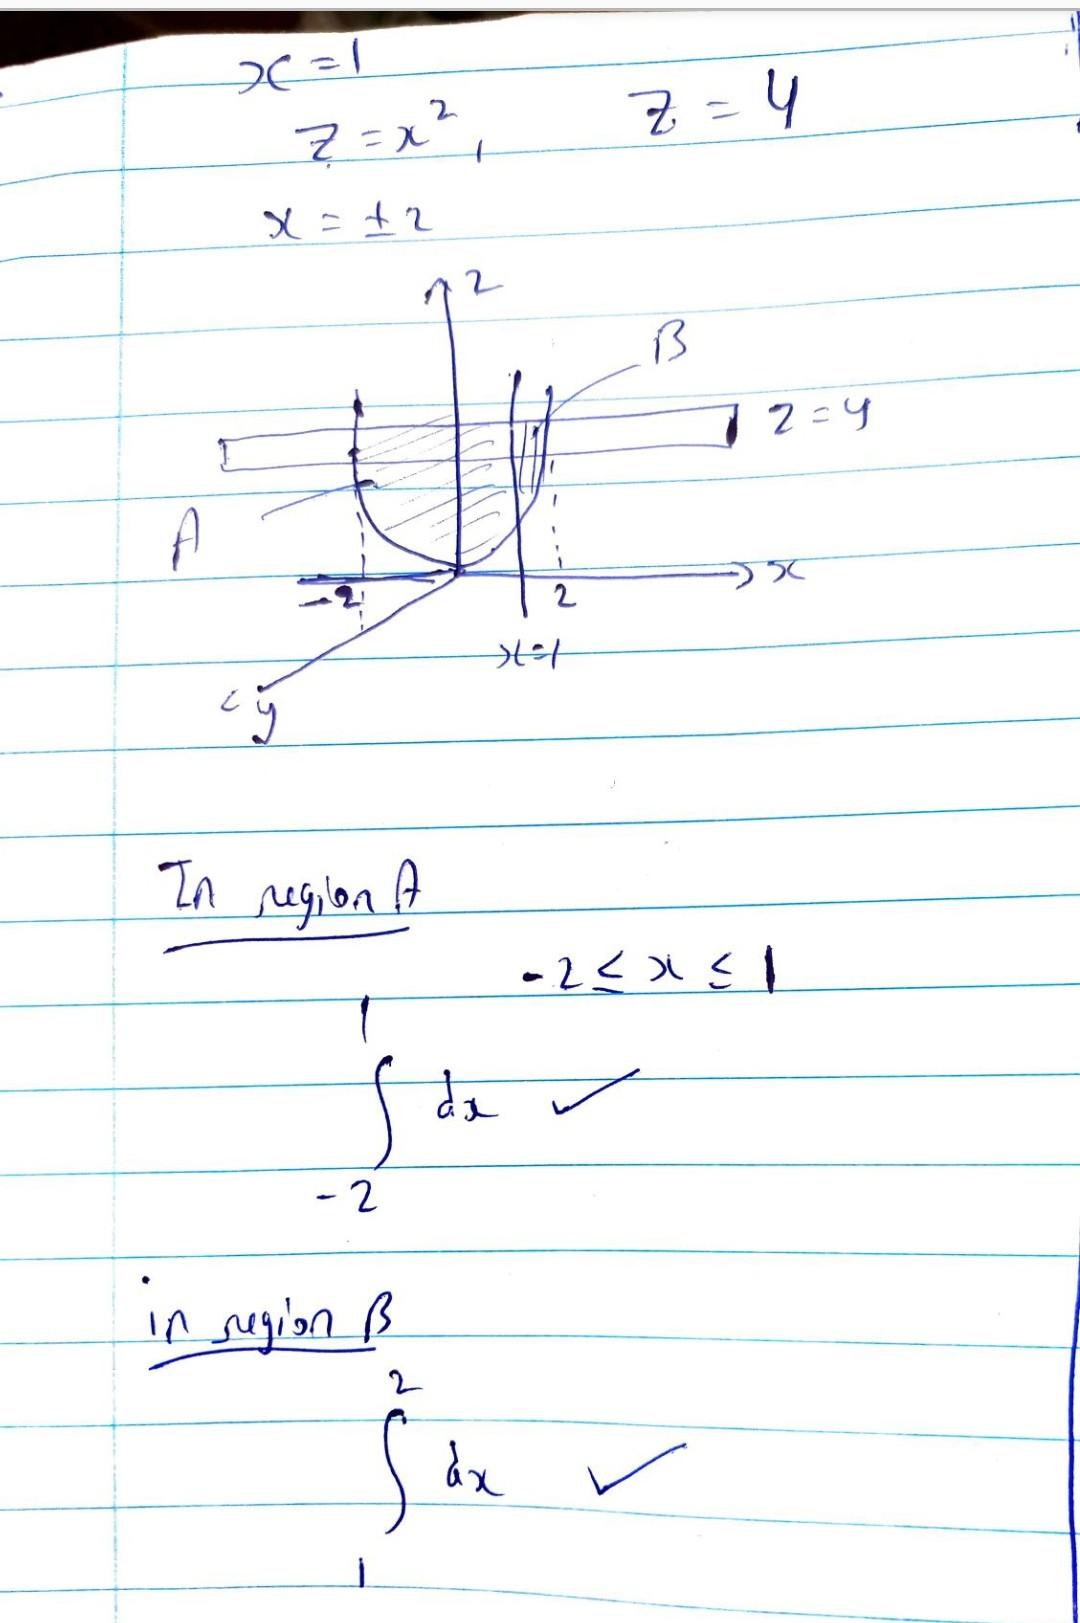 x = 1
z = x², z = 4
x = ± 2
z
B
z = 4
A
x
-2
2
x=1
y
In region A
-2 ≤ x ≤ 1
1
∫ dx ✓
-2
in region B
2
∫ dx ✓
1